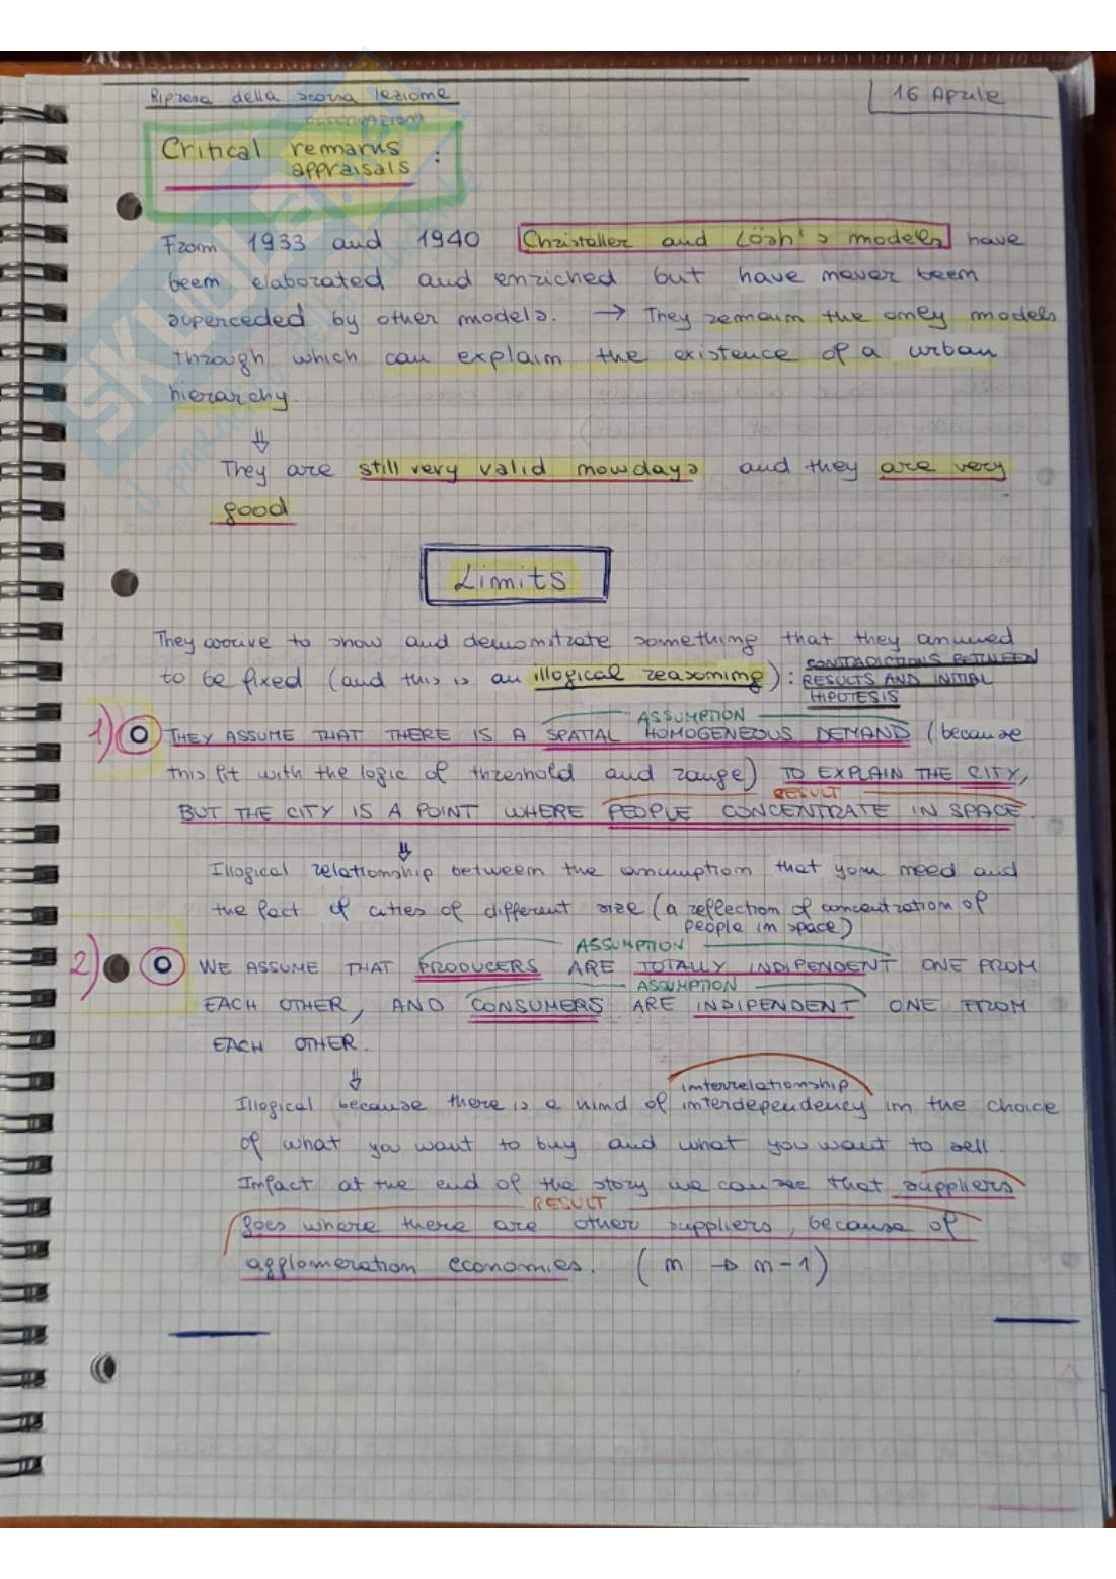 Ripresa della scorsa lezione
16 Aprile
Critical remarks
appraisals :
From 1933 and 1940 Christaller and Lösh's models have
been elaborated and enriched but have never been
superceded by other models. → They remain the only models
through which can explain the existence of a urban
hierarchy.
⇓
They are still very valid nowdays and they are very
good
Limits
They arrive to show and demonstrate something that they assumed
to be fixed (and this is an illogical reasoning) : CONTRADICTIONS BETWEEN
RESULTS AND INITIAL
HIPOTESIS
ASSUMPTION
1) THEY ASSUME THAT THERE IS A SPATIAL HOMOGENEOUS DEMAND (because
this fit with the logic of threshold and range) TO EXPLAIN THE CITY,
RESULT
BUT THE CITY IS A POINT WHERE PEOPLE CONCENTRATE IN SPACE.
⇓
Illogical relationship between the assumption that you need and
the fact of cities of different size (a reflection of concentration of
people in space)
ASSUMPTION
2) WE ASSUME THAT PRODUCERS ARE TOTALLY INDIPENDENT ONE FROM
ASSUMPTION
EACH OTHER, AND CONSUMERS ARE INDIPENDENT ONE FROM
EACH OTHER.
⇓
interrelationship
Illogical because there is a kind of interdependency in the choice
of what you want to buy and what you want to sell
Infact at the end of the story we can see that suppliers
RESULT
goes where there are other suppliers, because of
agglomeration economies. (n → n-1)